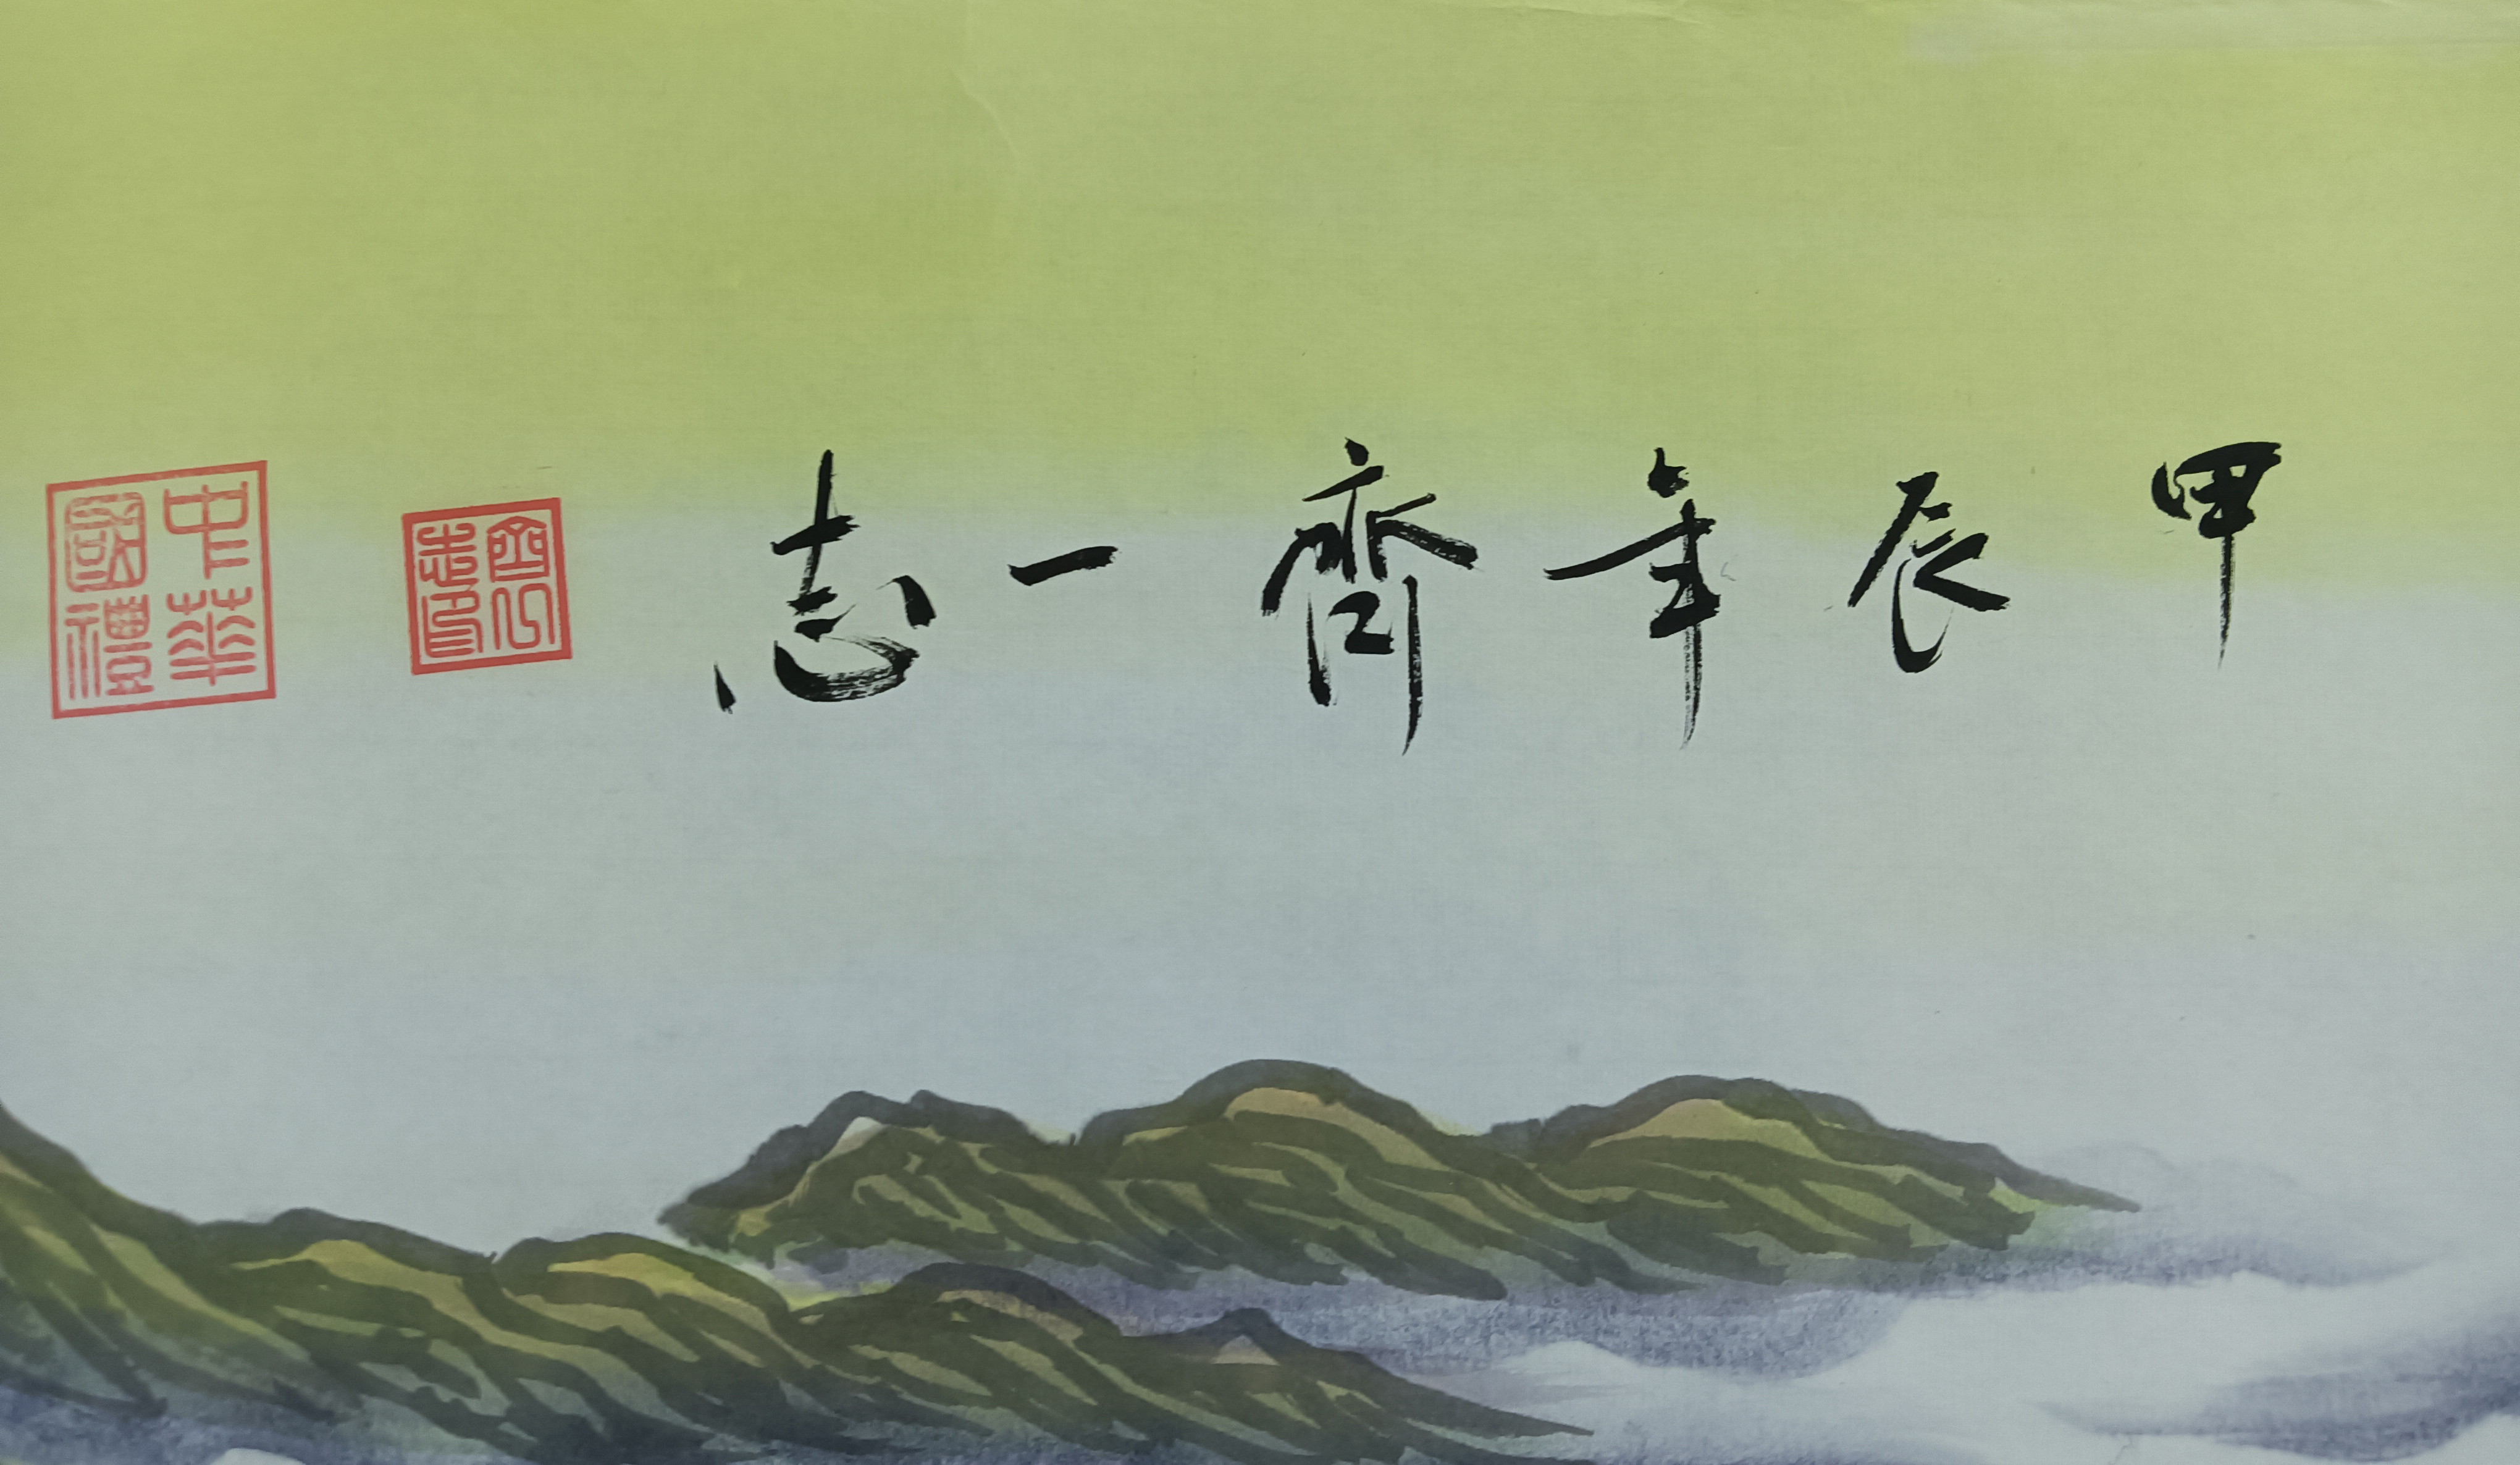 甲辰年齊一志
中華
國禮